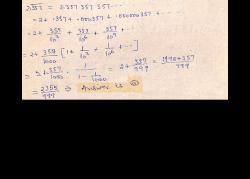 2.357 = 2.357 357 357 ...
= 2 + .357 + .000357 + .000000357 + ...
= 2 + 357/10³ + 357/10⁶ + 357/10⁹ + ...
= 2 + 357/1000 [1 + 1/10³ + 1/10⁶ + ...]
= 2 + 357/1000 · 1/(1 - 1/1000) = 2 + 357/999 =
= 2355/999 ⇒ Answer is